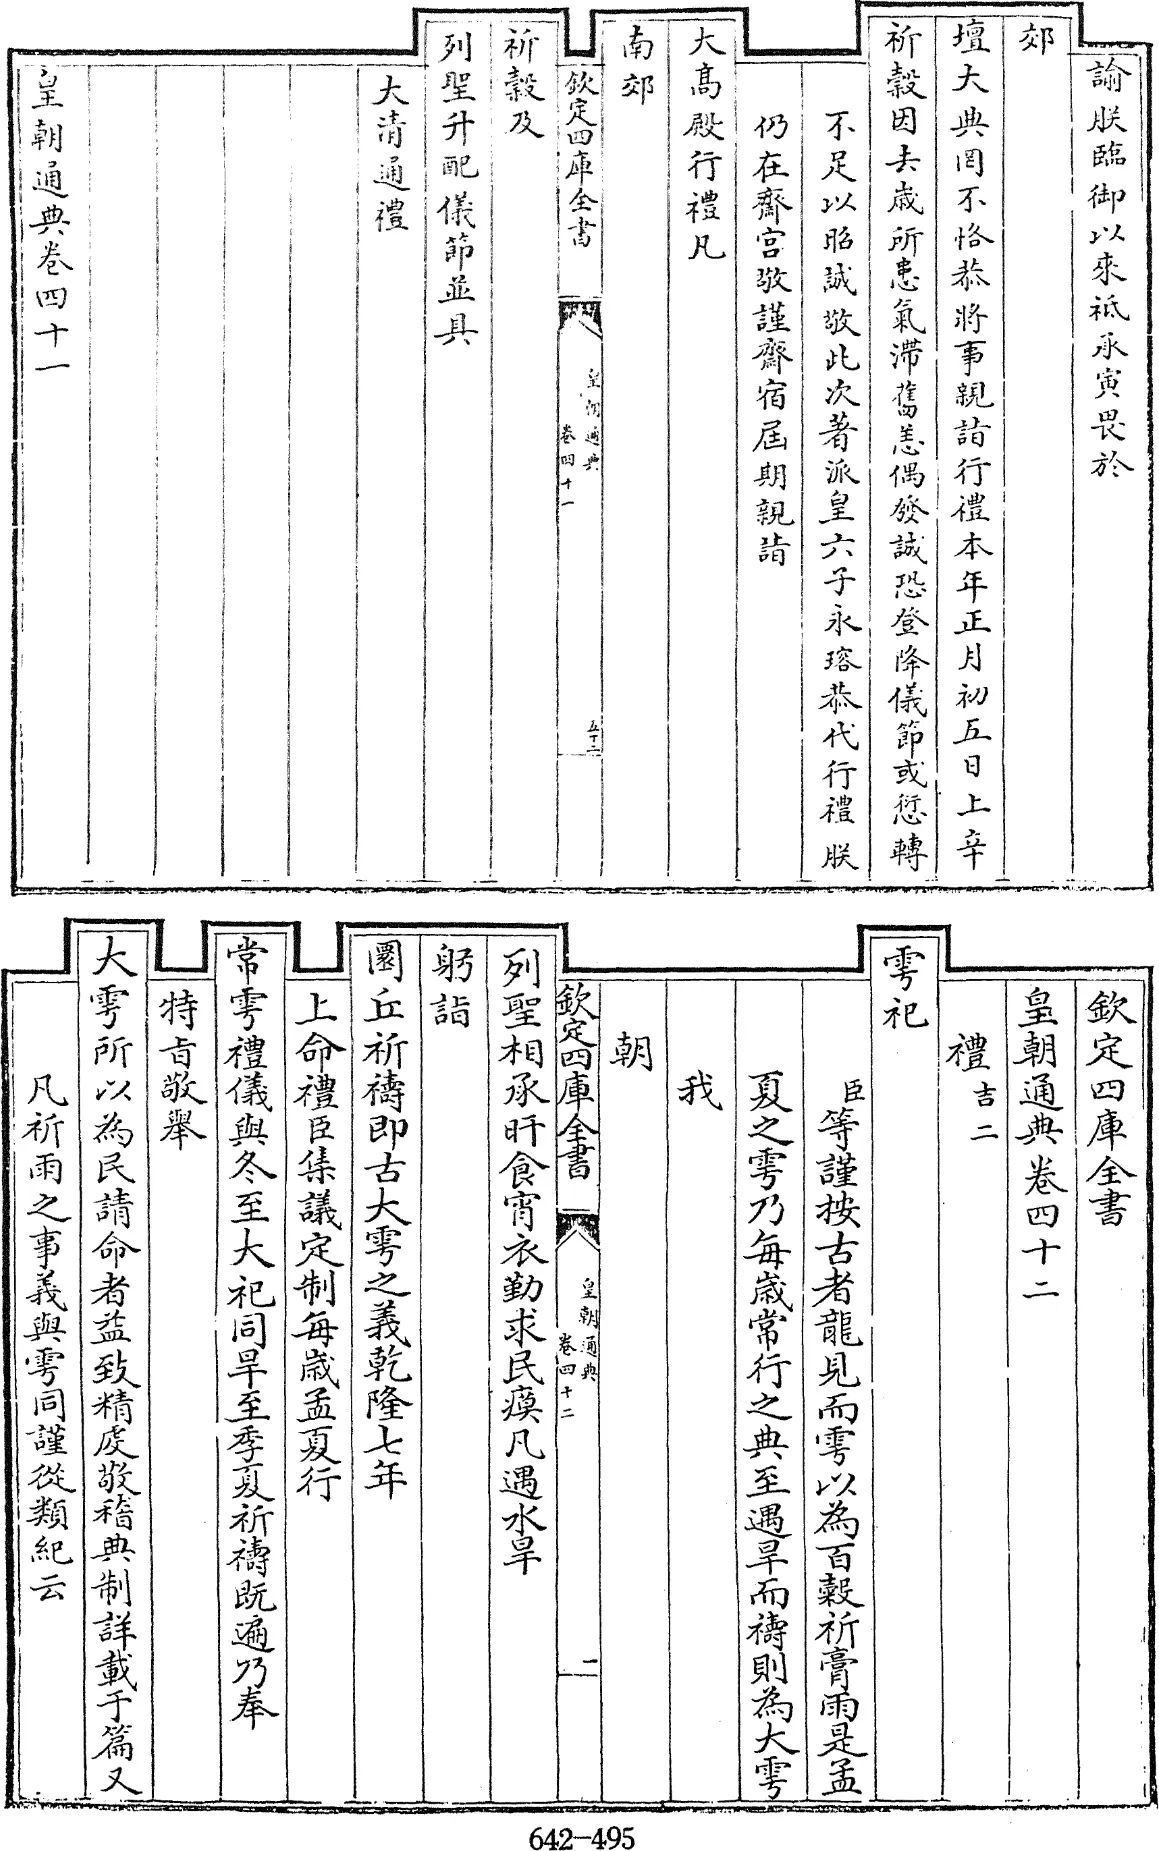 諭朕臨御以來祗承寅畏於
郊
壇大典罔不恪恭將事親詣行禮本年正月初五日上辛
祈穀因去歲所患氣滯舊恙偶發誠恐登降儀節或愆轉
不足以昭誠敬此次著派皇六子永瑢恭代行禮朕
仍在齋宮敬謹齋宿屆期親詣
大高殿行禮凡
南郊
欽定四庫全書
皇朝通典
卷四十一
五十二
祈穀及
列聖升配儀節並具
大清通禮
皇朝通典卷四十一
欽定四庫全書
皇朝通典卷四十二
禮吉二
雩祀
臣等謹按古者龍見而雩以為百穀祈膏雨是孟
夏之雩乃每歲常行之典至遇旱而禱則為大雩
我
朝
欽定四庫全書
皇朝通典
卷四十二
一
列聖相承旰食宵衣勤求民瘼凡遇水旱
躬詣
圜丘祈禱即古大雩之義乾隆七年
上命禮臣集議定制每歲孟夏行
常雩禮儀與冬至大祀同旱至季夏祈禱既遍乃奉
特旨敬舉
大雩所以為民請命者益致精虔敬稽典制詳載于篇又
凡祈雨之事義與雩同謹從類紀云
642-495